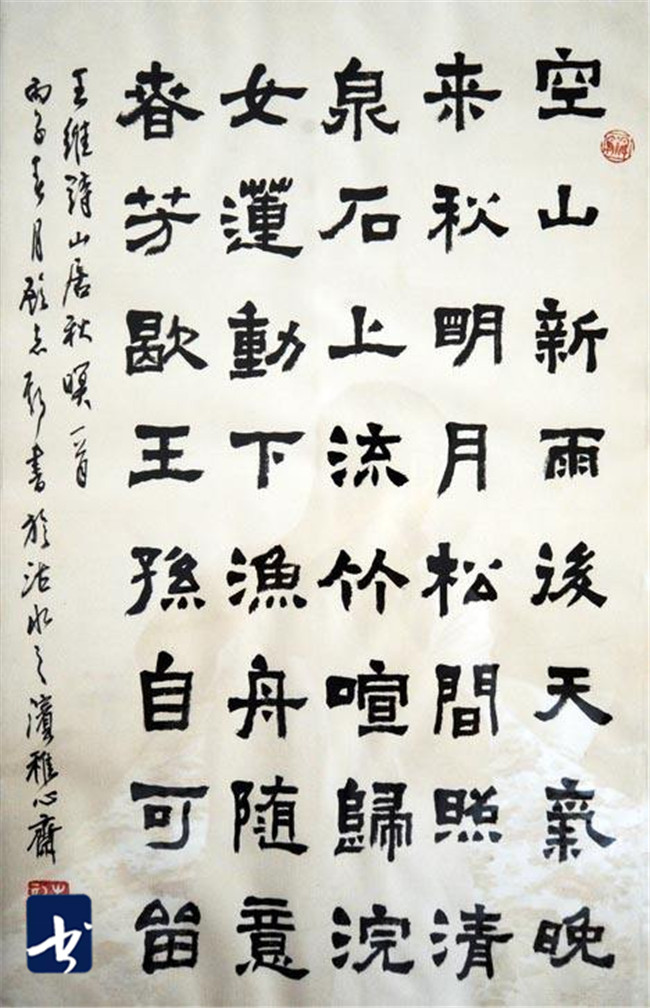 空山新雨後天氣晚
来秋眀月松間照清
泉石上流竹喧歸浣
女蓮動下漁舟随意
春芳歇王孫自可留
王維詩山居秋暝一首
丙子春月顧志新書於沽水之濱雅心齋
书